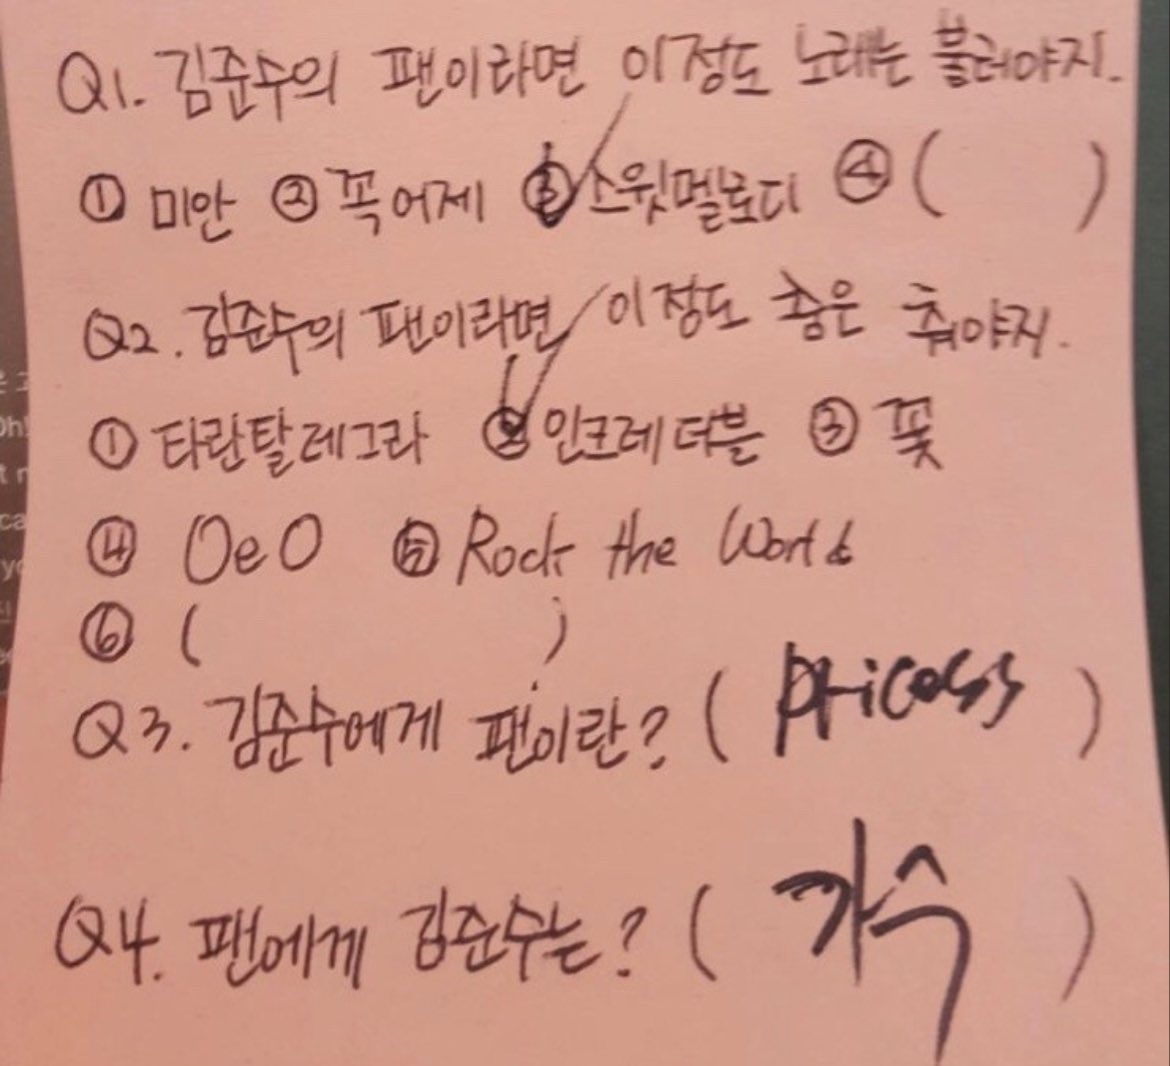 Q1. 김준수의 팬이라면 이정도 노래는 불러야지.
① 미안 ② 꼭어제 ③ 스윗멜로디 ④ ( )
Q2. 김준수의 팬이라면 이정도 춤은 춰야지.
① 타란탈레그라 ② 인크레더블 ③ 꽃
④ OeO ⑤ Rock the World
⑥ ( )
Q3. 김준수에게 팬이란? ( pricess )
Q4. 팬에게 김준수는? ( 가수 )